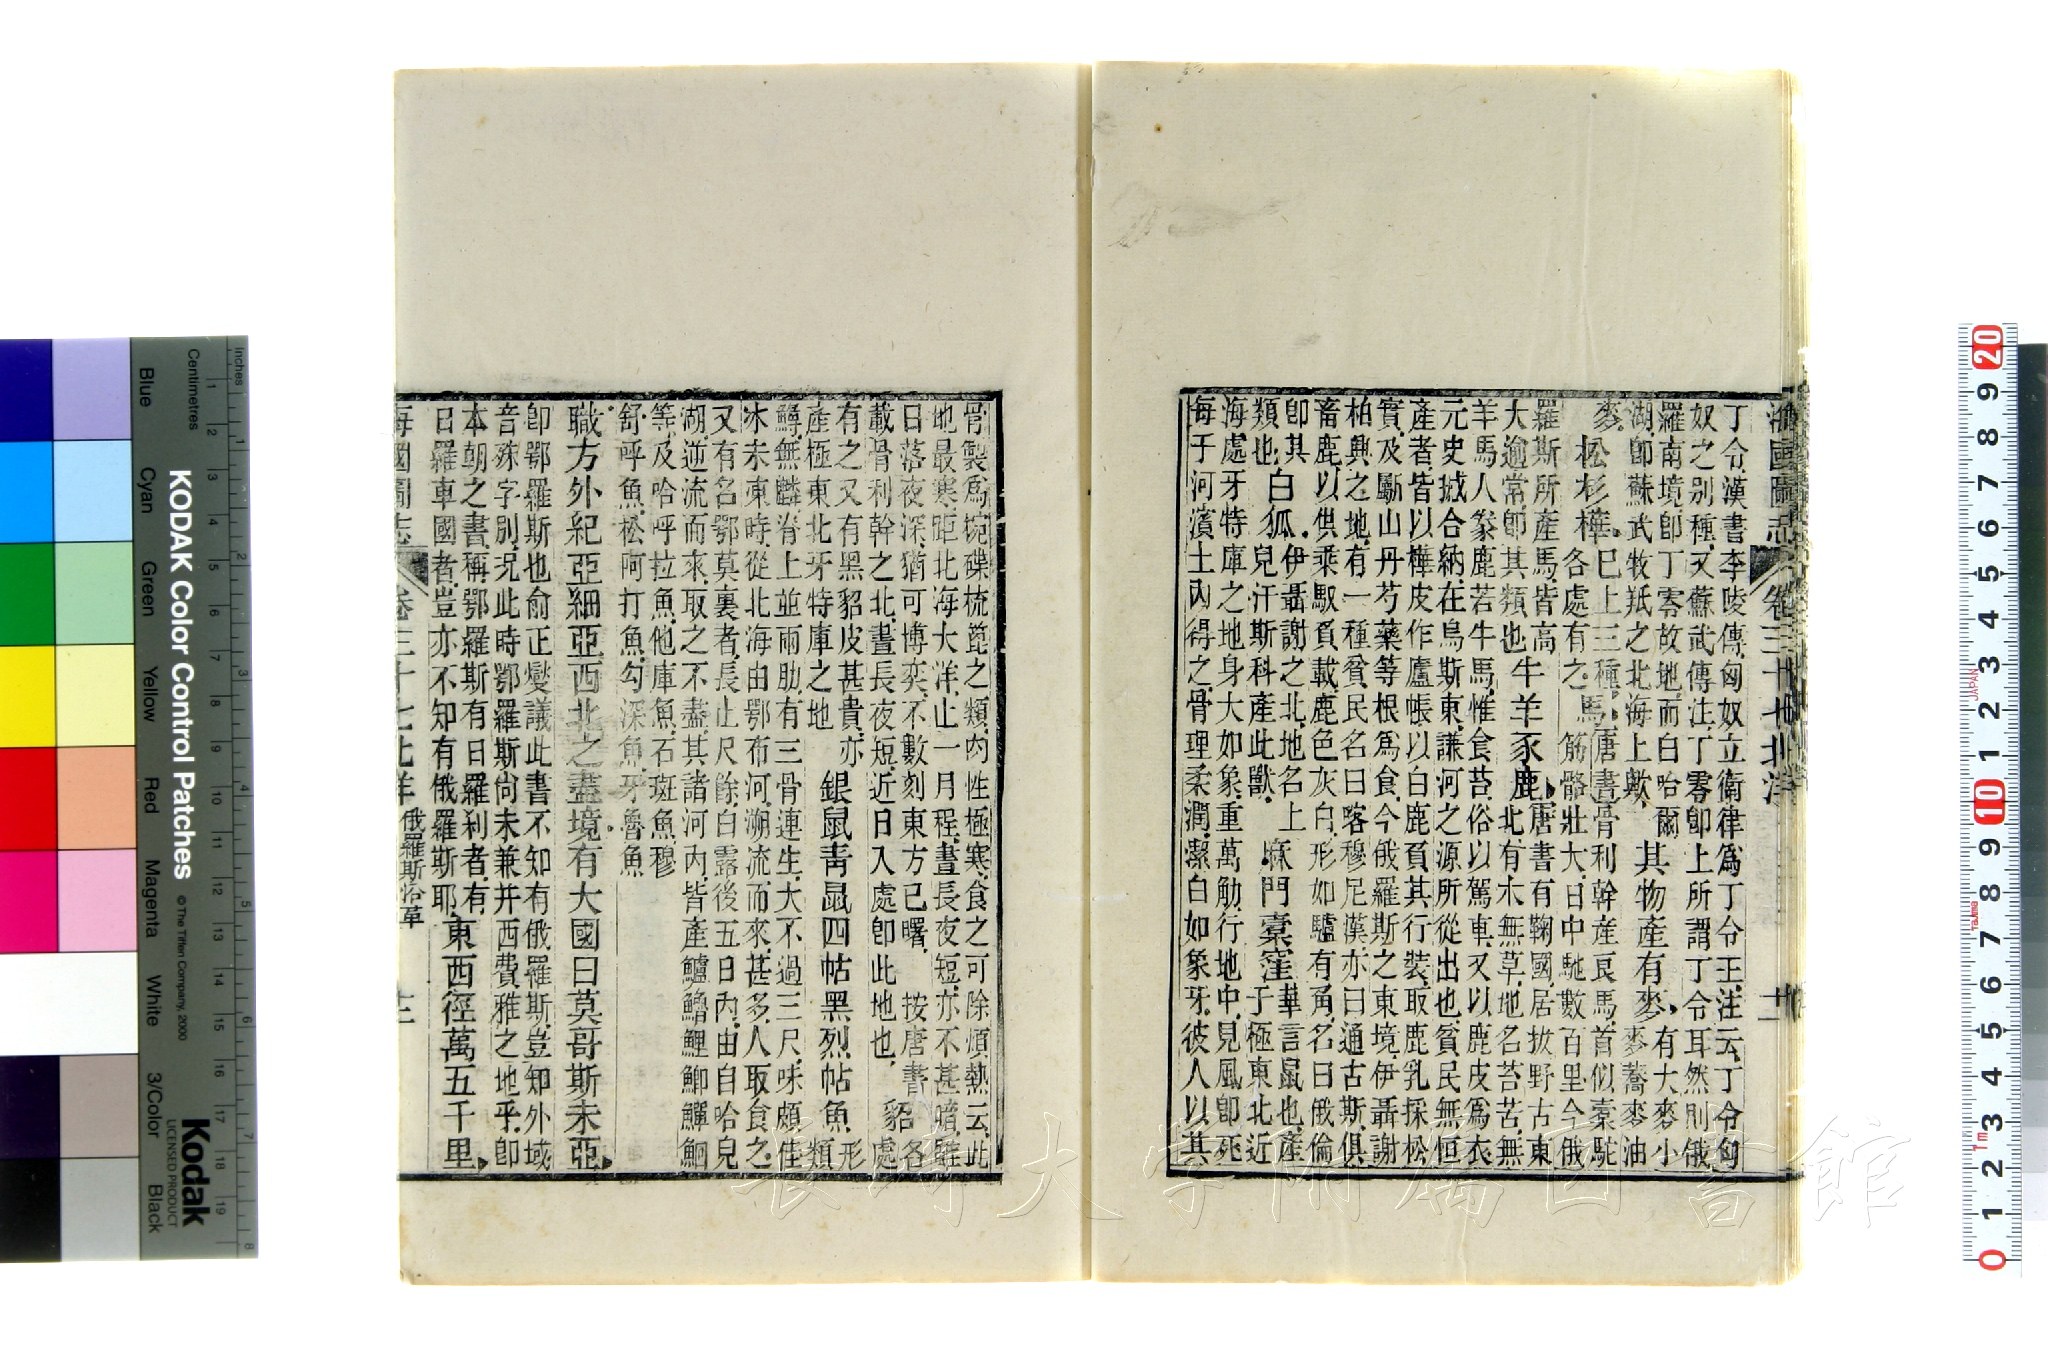 海國圖志 卷三十七北洋 十一
丁令.漢書李陵傳.匈奴立衛律爲丁令王.注云.丁令匈
奴之别種.又蘇武傳注.丁零卽上所謂丁令耳.然則俄
羅南境卽丁零故地.而白哈爾
湖卽蘇武牧羝之北海上歟.
其物產有麥
有大麥小
麥蕎麥油
麥.
松杉樺
巳上三種.
各處有之.
馬
唐書骨利幹產良馬.首似槖駝
筋骼壯大.日中馳數百里今俄
羅斯所產馬.皆高
大逾常.卽其類也
牛羊豕鹿
唐書有鞠國.居拔野古東
北有木無草.地名苔苦.無
羊馬.人豢鹿若牛馬.惟食苔.俗以駕車.又以鹿皮爲衣
元史撼合納.在烏斯東.謙河之源所從出也.貧民無恒
產者.皆以樺皮作廬帳.以白鹿負其行裝.取鹿乳.採松
實.及劚山丹芍藥等根爲食.今俄羅斯之東境.伊聶謝
柏興之地.有一種貧民名曰喀穆尼漢.亦曰通古斯.俱
畜鹿以供乘馭負載.鹿色灰白.形如驢.有角.名曰俄倫
卽其
類也.
白狐.
伊聶謝之北.地名上
兒汗斯科產此獸.
麻門槖窪
華言鼠也.產
于極東北近
海處牙特庫之地.身大如象.重萬觔.行地中.見風卽死
每于河濱土內得之.骨理柔潤.潔白如象牙.彼人以其
骨製爲椀碟梳篦之類.肉性極寒.食之可除煩熱云.此
地最寒.距北海大洋.止一月程.晝長夜短.亦不甚暗.雖
日落夜深.猶可博奕.不數刻.東方已曙. 按唐書.
載骨利幹之北.晝長夜短.近日入處.卽此地也.
貂
各
處
有之.又有黑貂皮甚貴.亦
產極東北牙特庫之地
銀鼠青鼠四帖黑烈帖魚.
形
類
鱘.無鱗.脊上並兩肋.有三骨連生.大不過三尺.味頗佳
冰未凍時.從北海由鄂布河.溯流而來.甚多.人取食之.
又有名鄂莫裏者.長止尺餘.白露後五日內.由白哈兒
湖逆流而來.取之不盡.其諸河內.皆產鱸鱠鯉鯽鱓鮰
等.及哈呼拉魚.他庫魚.石斑魚.穆
舒呼魚.松阿打魚.勾深魚.牙魯魚
職方外紀.亞細亞西北之盡境.有大國曰莫哥斯未亞
卽鄂羅斯也.俞正燮議此書不知有俄羅斯.豈知外域
音殊字別.況此時鄂羅斯尙未兼并西費雅之地乎.卽
本朝之書.稱鄂羅斯.有曰羅刹者.有
曰羅車國者.豈亦不知有俄羅斯耶.
東西徑萬五千里
海國圖志 卷三十七北洋 俄羅斯沿革 十二
長崎大学附属図書館
KODAK Color Control Patches
© The Tiffen Company, 2000
Kodak
LICENSED PRODUCT
Blue Cyan Green Yellow Red Magenta White 3/Color Black
Inches
Centimetres